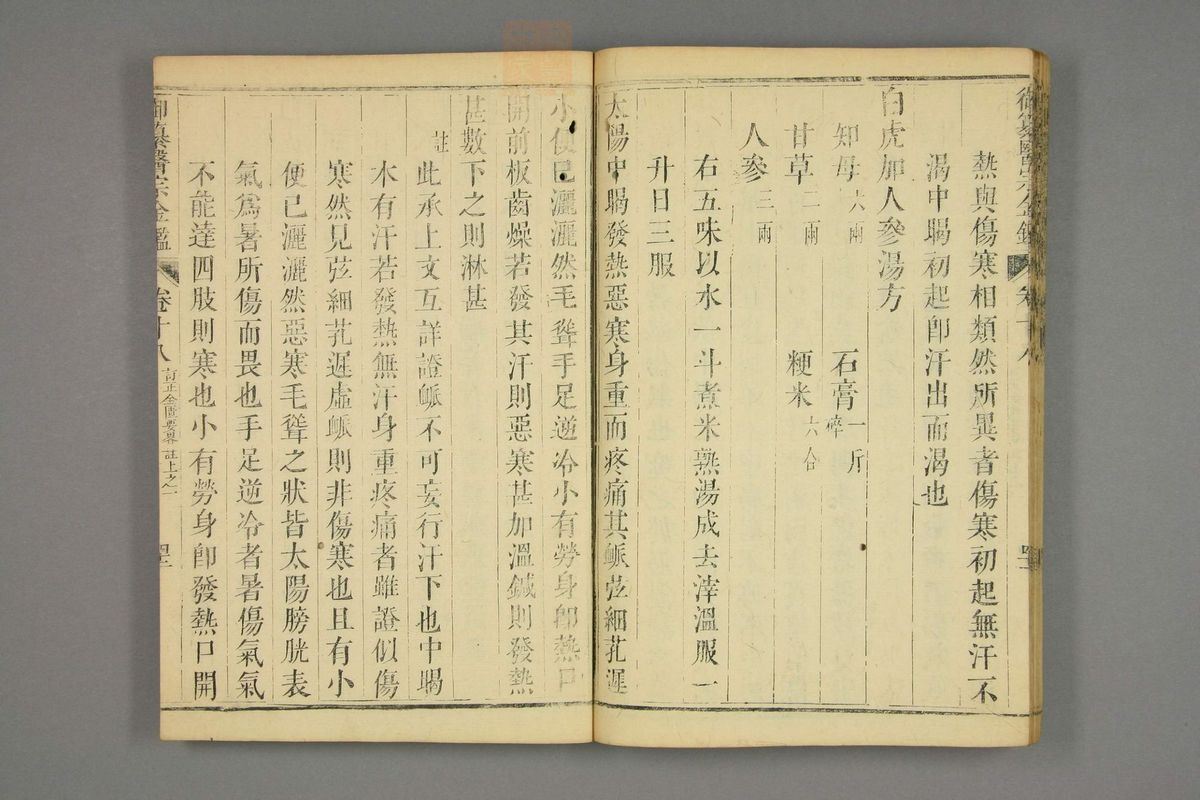 熱與傷寒相類然所異者傷寒初起無汗不
渴中暍初起卽汗出而渴也
白虎加人參湯方
知母六兩 石膏一斤碎
甘草二兩 粳米六合
人參三兩
右五味以水一斗煮米熟湯成去滓溫服一
升日三服
太陽中暍發熱惡寒身重而疼痛其脈弦細芤遲
小便已灑灑然毛聳手足逆冷小有勞身卽熱口
開前板齒燥若發其汗則惡寒甚加溫鍼則發熱
甚數下之則淋甚
註 此承上文互詳證脈不可妄行汗下也中暍
本有汗若發熱無汗身重疼痛者雖證似傷
寒然見弦細芤遲虛脈則非傷寒也且有小
便已灑灑然惡寒毛聳之狀皆太陽膀胱表
氣爲暑所傷而畏也手足逆冷者暑傷氣氣
不能達四肢則寒也小有勞身卽發熱口開
御纂醫宗金鑑 卷十八 訂正金匱要畧註上之一